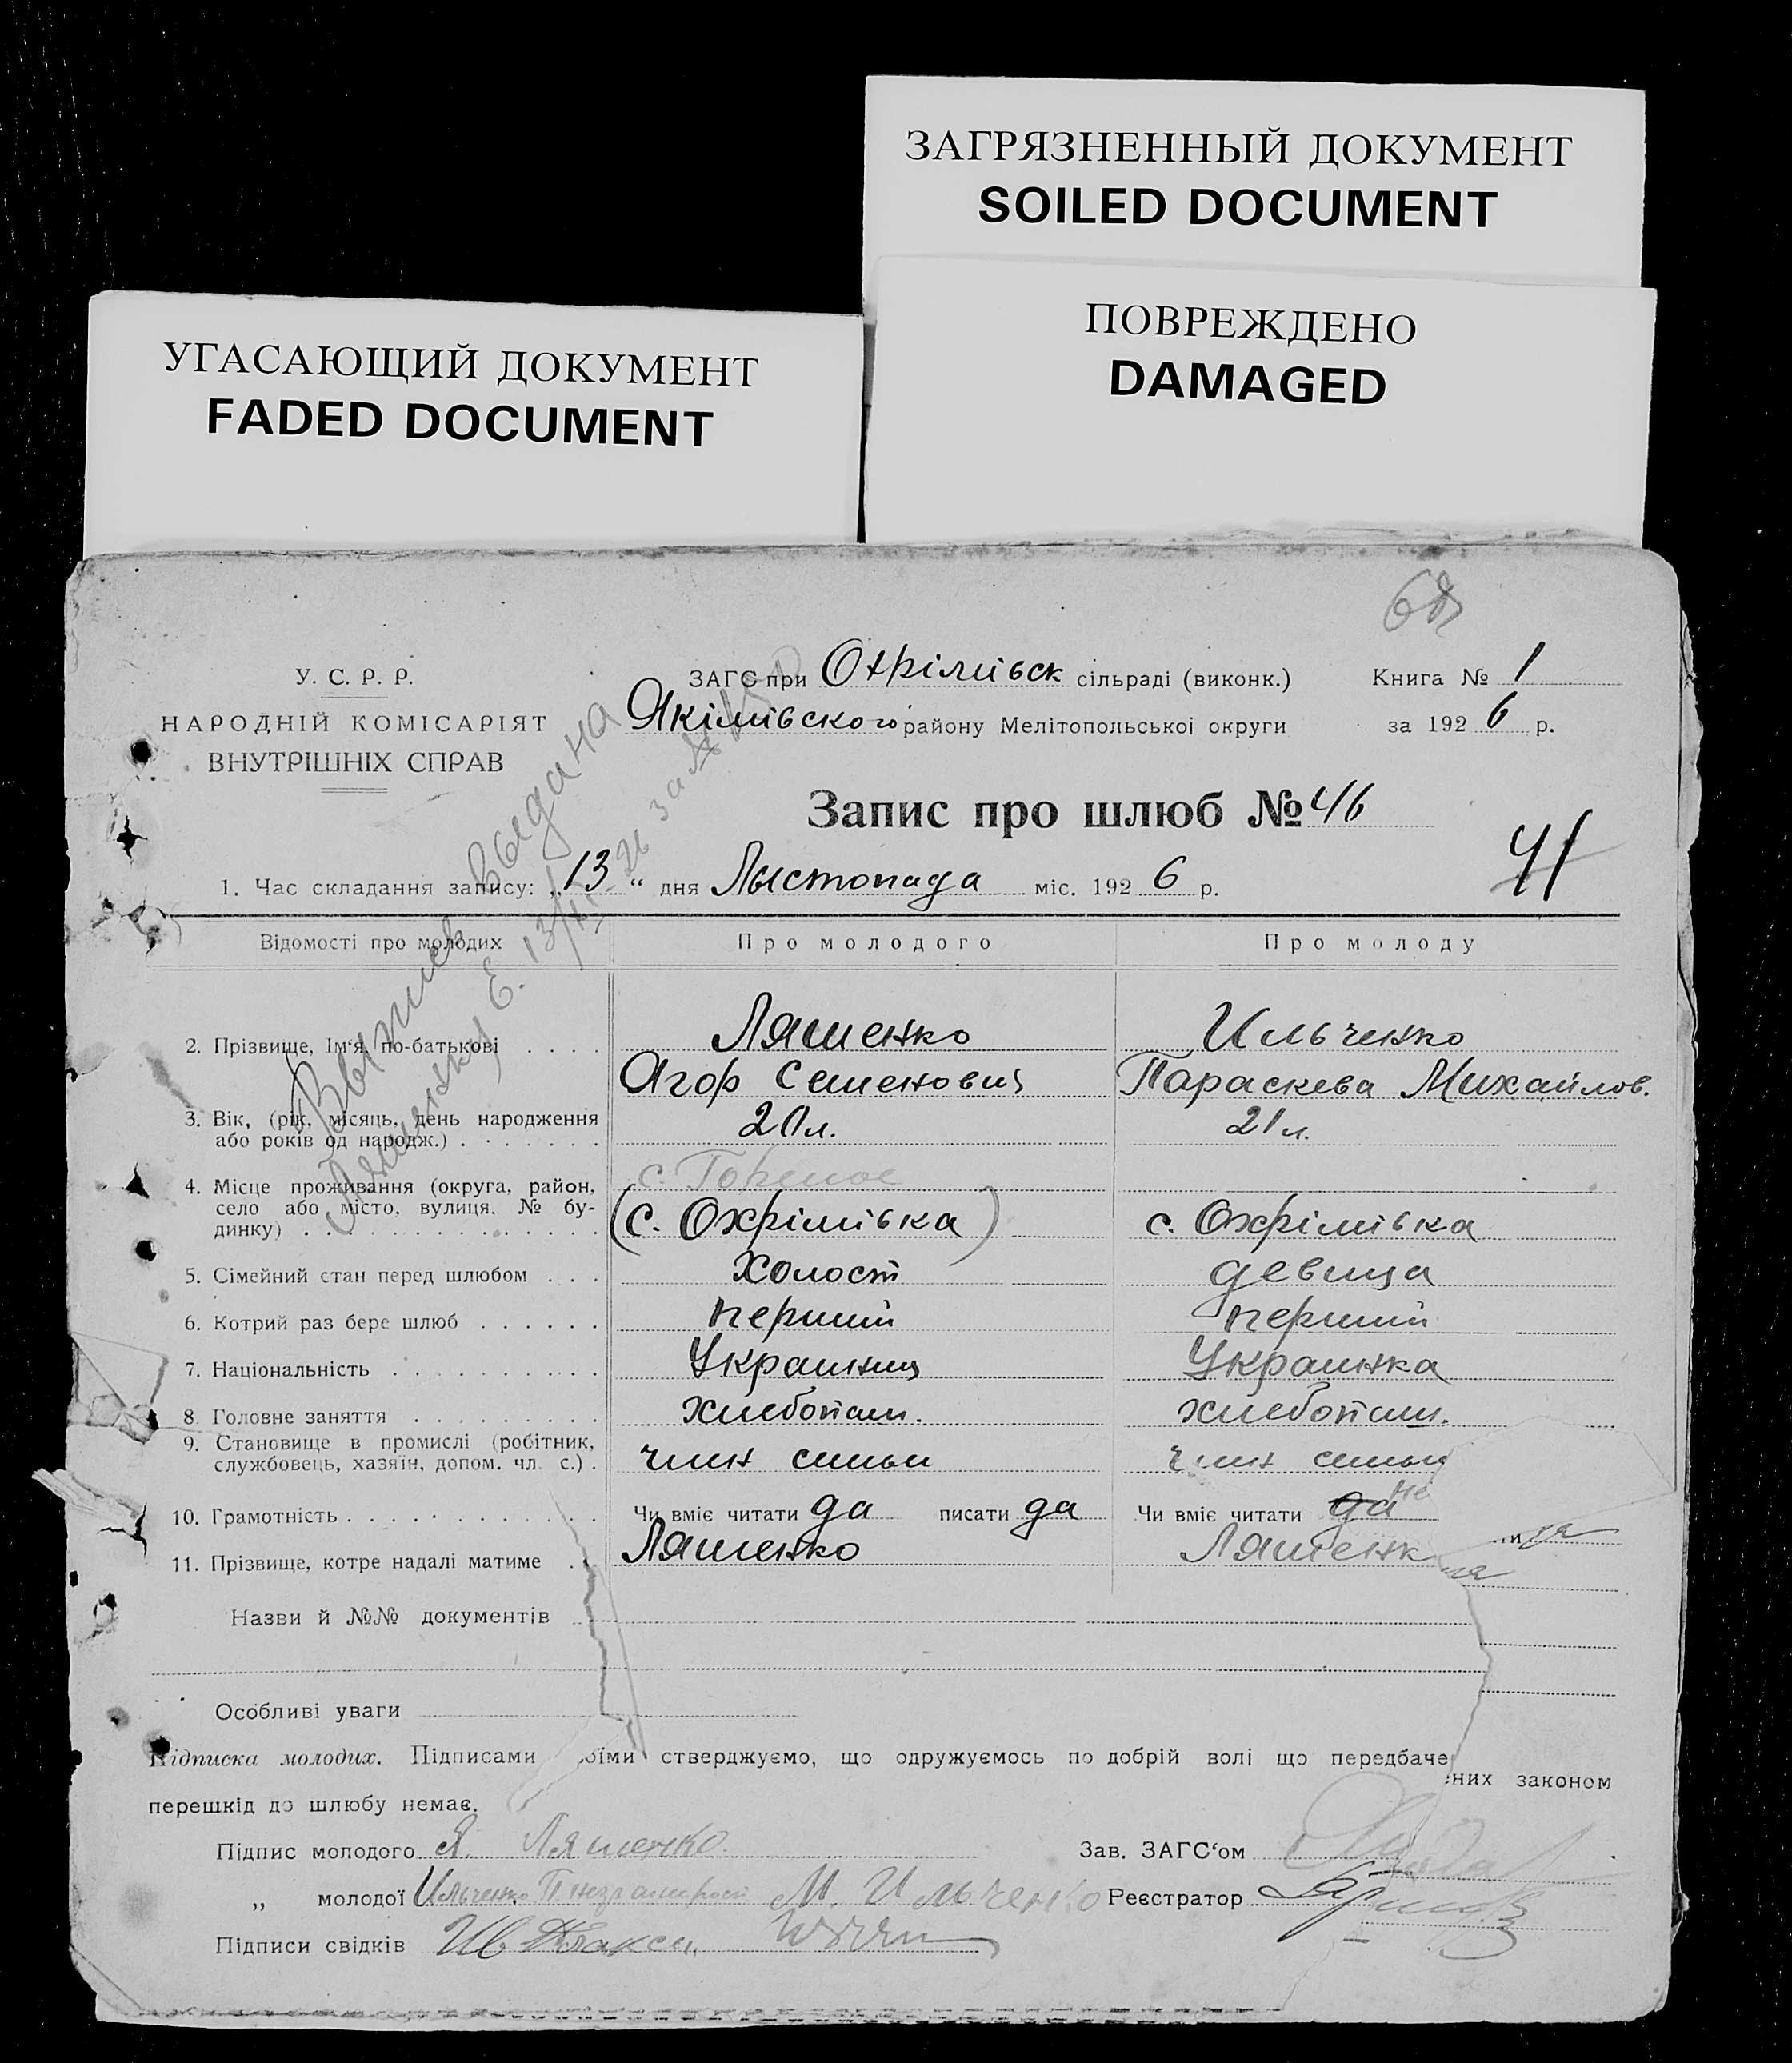 ЗАГРЯЗНЕННЫЙ ДОКУМЕНТ
SOILED DOCUMENT
ПОВРЕЖДЕНО
DAMAGED
УГАСАЮЩИЙ ДОКУМЕНТ
FADED DOCUMENT
У. С. Р. Р.
НАРОДНІЙ КОМІСАРІЯТ
ВНУТРІШНІХ СПРАВ
ЗАГС при Охрімівськ сільраді (виконк.)
Якімівського району Мелітопольської округи
Книга № 1
за 1926 р.
Запис про шлюб № 46
41
1. Час складання запису: „13“ дня Лыстопада міс. 1926 р.
Выпись выдана
Відомості про молодих Про молодого Про молоду
2. Прізвище, Ім'я, по-батькові . . . . Ляшенко Ильченко
Ягор Семенович Параскева Михайлов.
3. Вік, (рік, місяць, день народження 20л. 21л.
або років од народж.) . . . . . . .
4. Місце проживання (округа, район, с.
село або місто, вулиця, № бу- (с. Охрімівка) с. Охрімівка
динку) . . . . . . . . . . . . . . .
5. Сімейний стан перед шлюбом . . . холост девица
6. Котрий раз бере шлюб . . . . . . перший перший
7. Національність . . . . . . . . . . . Украинец Украинка
8. Головне заняття . . . . . . . . . хлебопаш. хлебопаш.
9. Становище в промислі (робітник, член симьи член симьи
службовець, хазяїн, допом. чл. с.) .
10. Грамотність . . . . . . . . . . . . Чи вміє читати да писати да Чи вміє читати да не
11. Прізвище, котре надалі матиме . . Ляшенко Ляшенк
Назви й №№ документів
Особливі уваги
Підписка молодих. Підписами своїми стверджуємо, що одружуємось по добрій волі що передбачених законом
перешкід до шлюбу немає.
Підпис молодого Я. Ляшенко Зав. ЗАГС'ом
„ молодої Ильченко П М. Ильченко Реєстратор
Підписи свідків